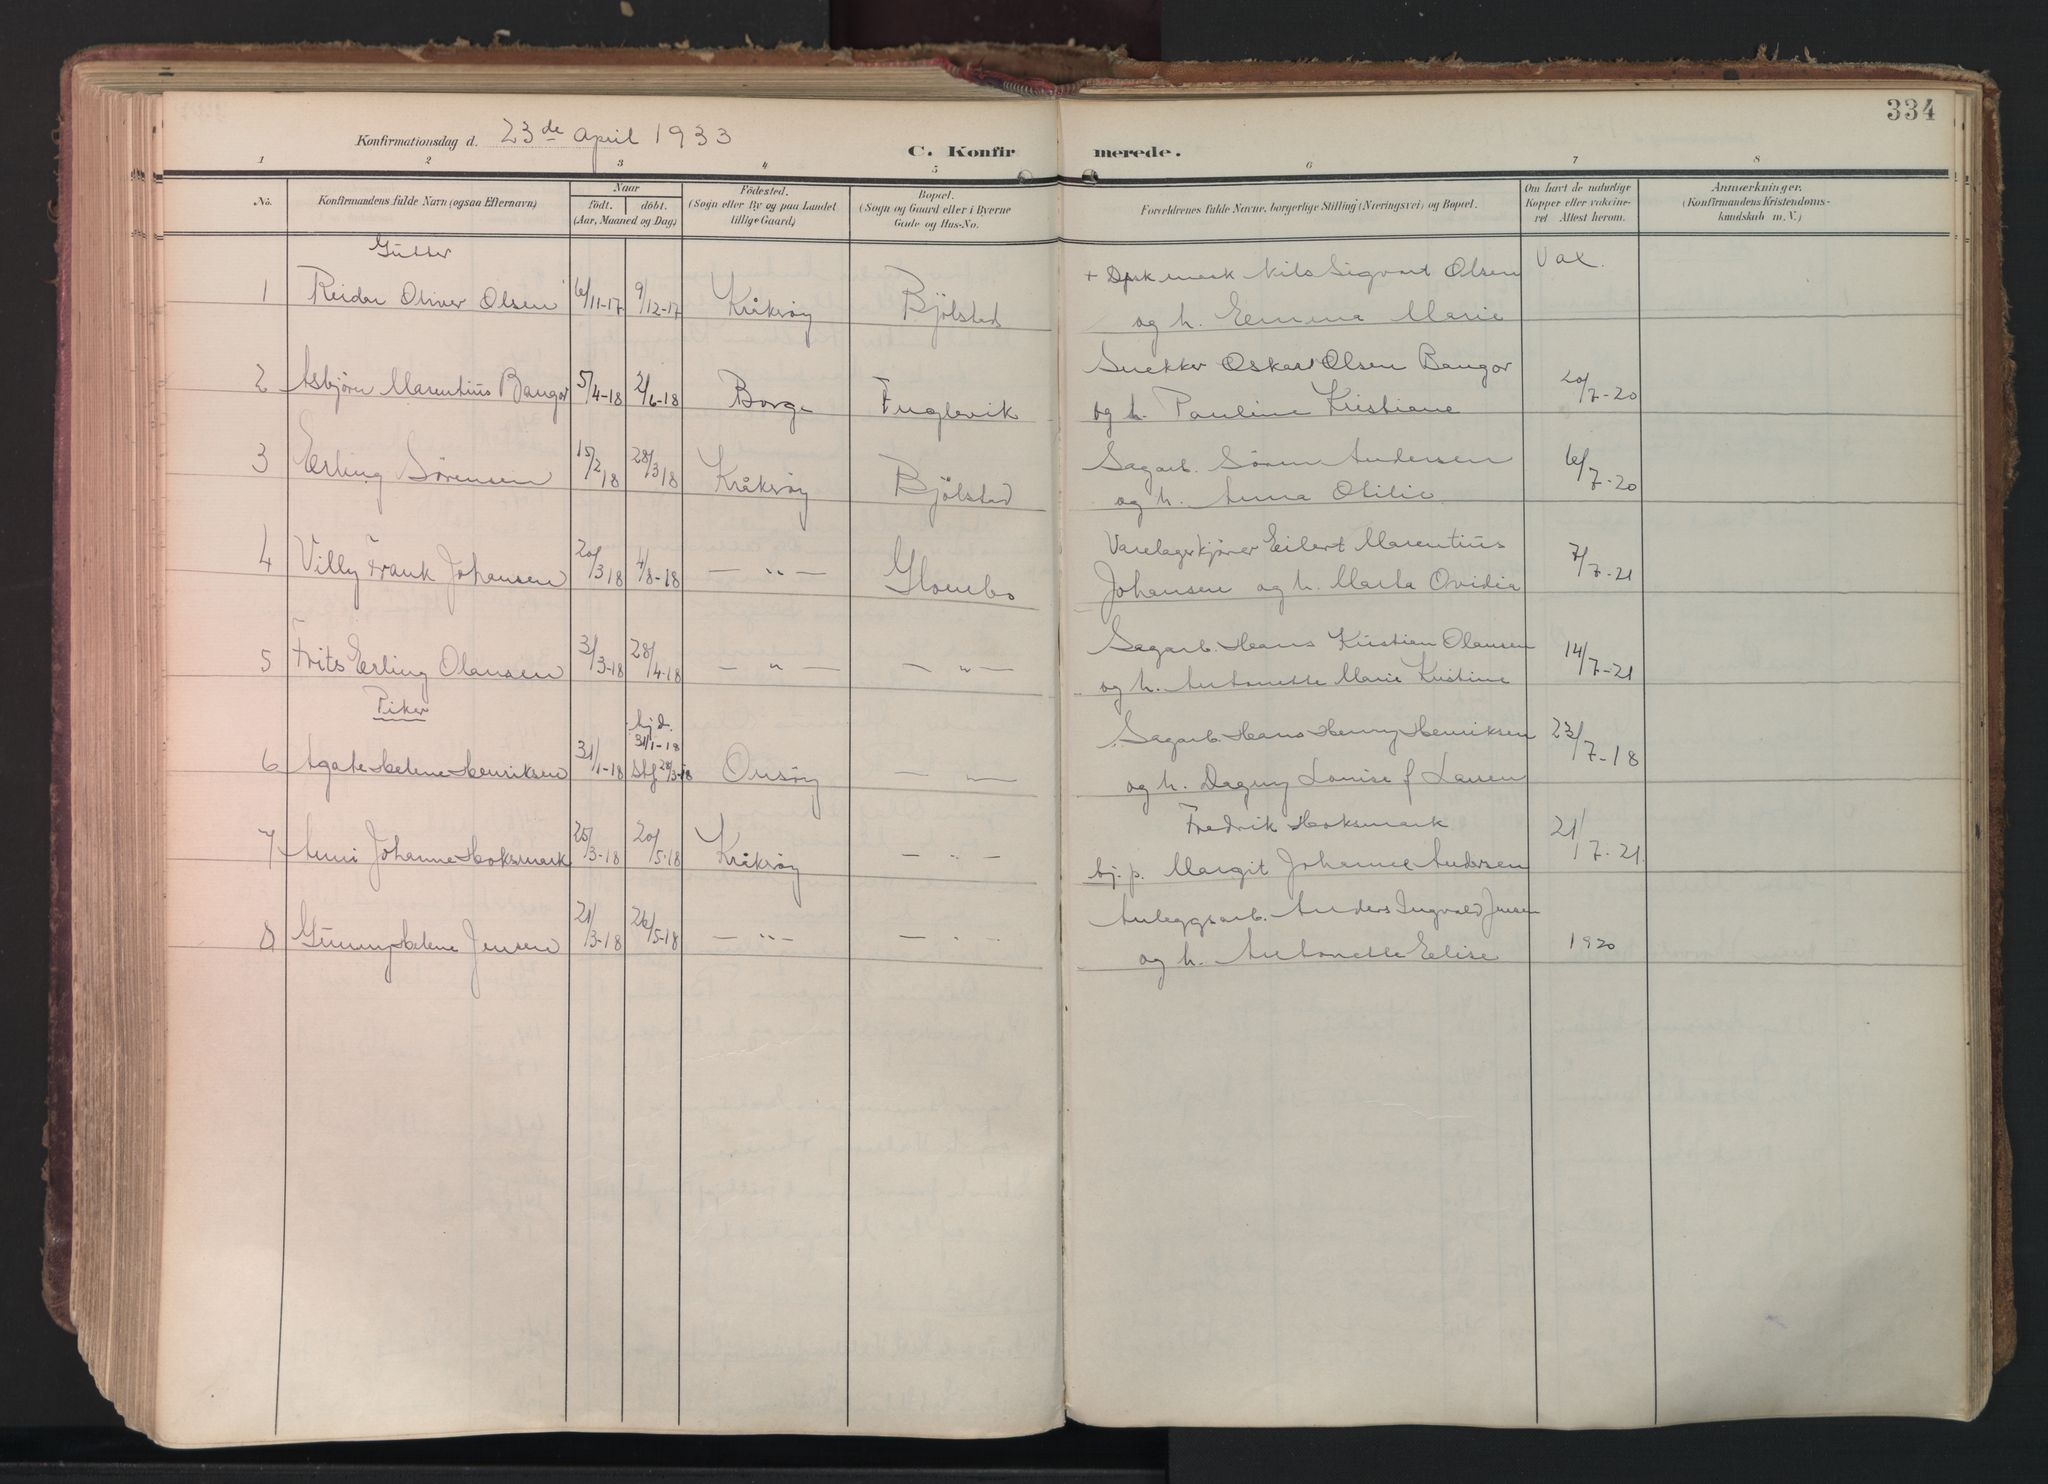 334
Konfirmationsdag d. 23de April 1933
C. Konfirmerede.
1 2 3 4 5 6 7 8
No. Konfirmandens fulde Navn (ogsaa Efternavn) Naar født. døbt. (Aar, Maaned og Dag) Fødested. (Sogn eller By og paa Landet tillige Gaard) Bopæl. (Sogn og Gaard eller i Byerne Gade og Hus-No. Forældrenes fulde Navne, borgerlige Stilling (Næringsvei) og Bopæl. Om havt de naturlige Kopper eller vakcineret Attest herom. Anmærkninger. (Konfirmandens Kristendomskundskab m. V.)
Gutter
1 Reidar Oliver Olsen 6/11-17 9/12-17 Kråkrøy Bjölstad + mark Nils Sigvard Olsen Vax.
og h. Emma Marie
2 Asbjörn Marentius Bangor 5/4-18 2/6-18 Borge Fuglevik Snekker Oskar Olsen Bangor 20/7-20
og h. Pauline Kristiane
3 Erling Sørensen 15/2 18 28/3 18 Kråkrøy Bjölstad Sagarb. Sören Andersen 6/7-20
og h. Anna Otilie
4 Villy Frank Johansen 20/3 18 4/8-18 — " — Glombo Varelagerkjörer Eilert Marentius 7/7-21
Johansen og h. Marta Ovidia
5 Frits Erling Olausen 31/3-18 28/4-18 — " — — " — Sagarb. Hans Kristian Olausen 14/7-21
og h. Antonette Marie Kristine
Piker
6 Agate Helene Henriksen 31/1-18 hjd. 31/1-18 Stf 28/3-18 Onsøy — " — Sagarb. Hans Henry Henriksen 23/7-18
og h. Dagny Lovise f Larsen
7 Anni Johanne Hoksmark 25/3-18 20/5-18 Kråkrøy — " — Fredrik Hoksmark 21/7-21.
hj. p. Margit Johanne Andersen
8 Gunny Helene Jensen 21/3-18 26/5-18 — " — — " — Anleggsarb. Anders Ingvald Jensen 1920
og h. Antonette Elise